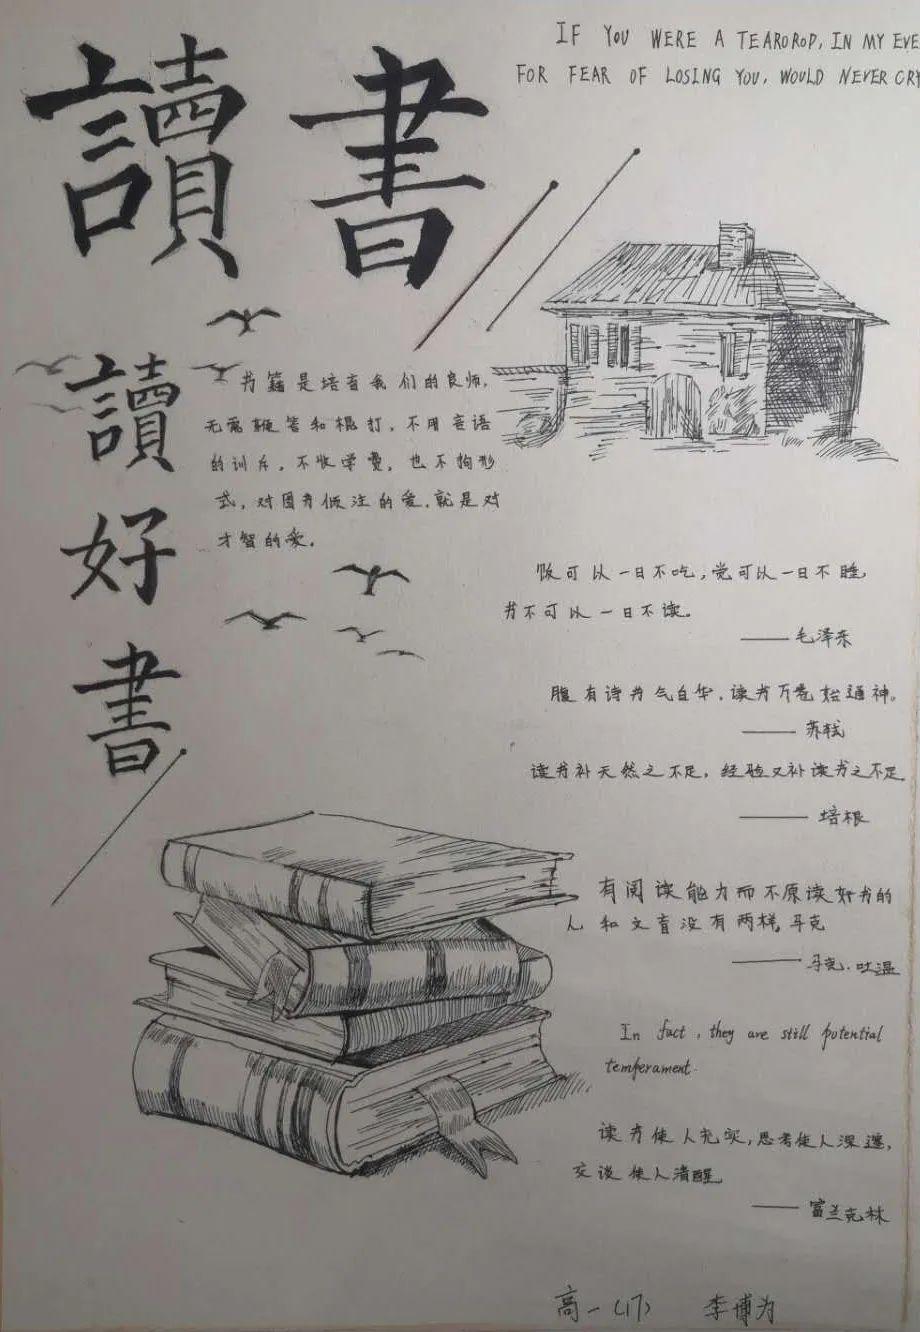 讀書
IF YOU WERE A TEARDROP, IN MY EYE
FOR FEAR OF LOSING YOU, WOULD NEVER CRY
讀好書
书籍是培育我们的良师,
无需鞭笞和棍打,不用言语
的训斥,不收学费,也不拘形
式,对图书倾注的爱,就是对
才智的爱。
饭可以一日不吃,觉可以一日不睡,
书不可以一日不读。
——毛泽东
腹有诗书气自华,读书万卷始通神。
——苏轼
读书补天然之不足,经验又补读书之不足
——培根
有阅读能力而不原读好书的
人和文盲没有两样,马克
——马克·吐温
In fact, they are still potential
temperament.
读书使人充实,思考使人深邃,
交谈使人清醒
——富兰克林
高一(17) 李博为